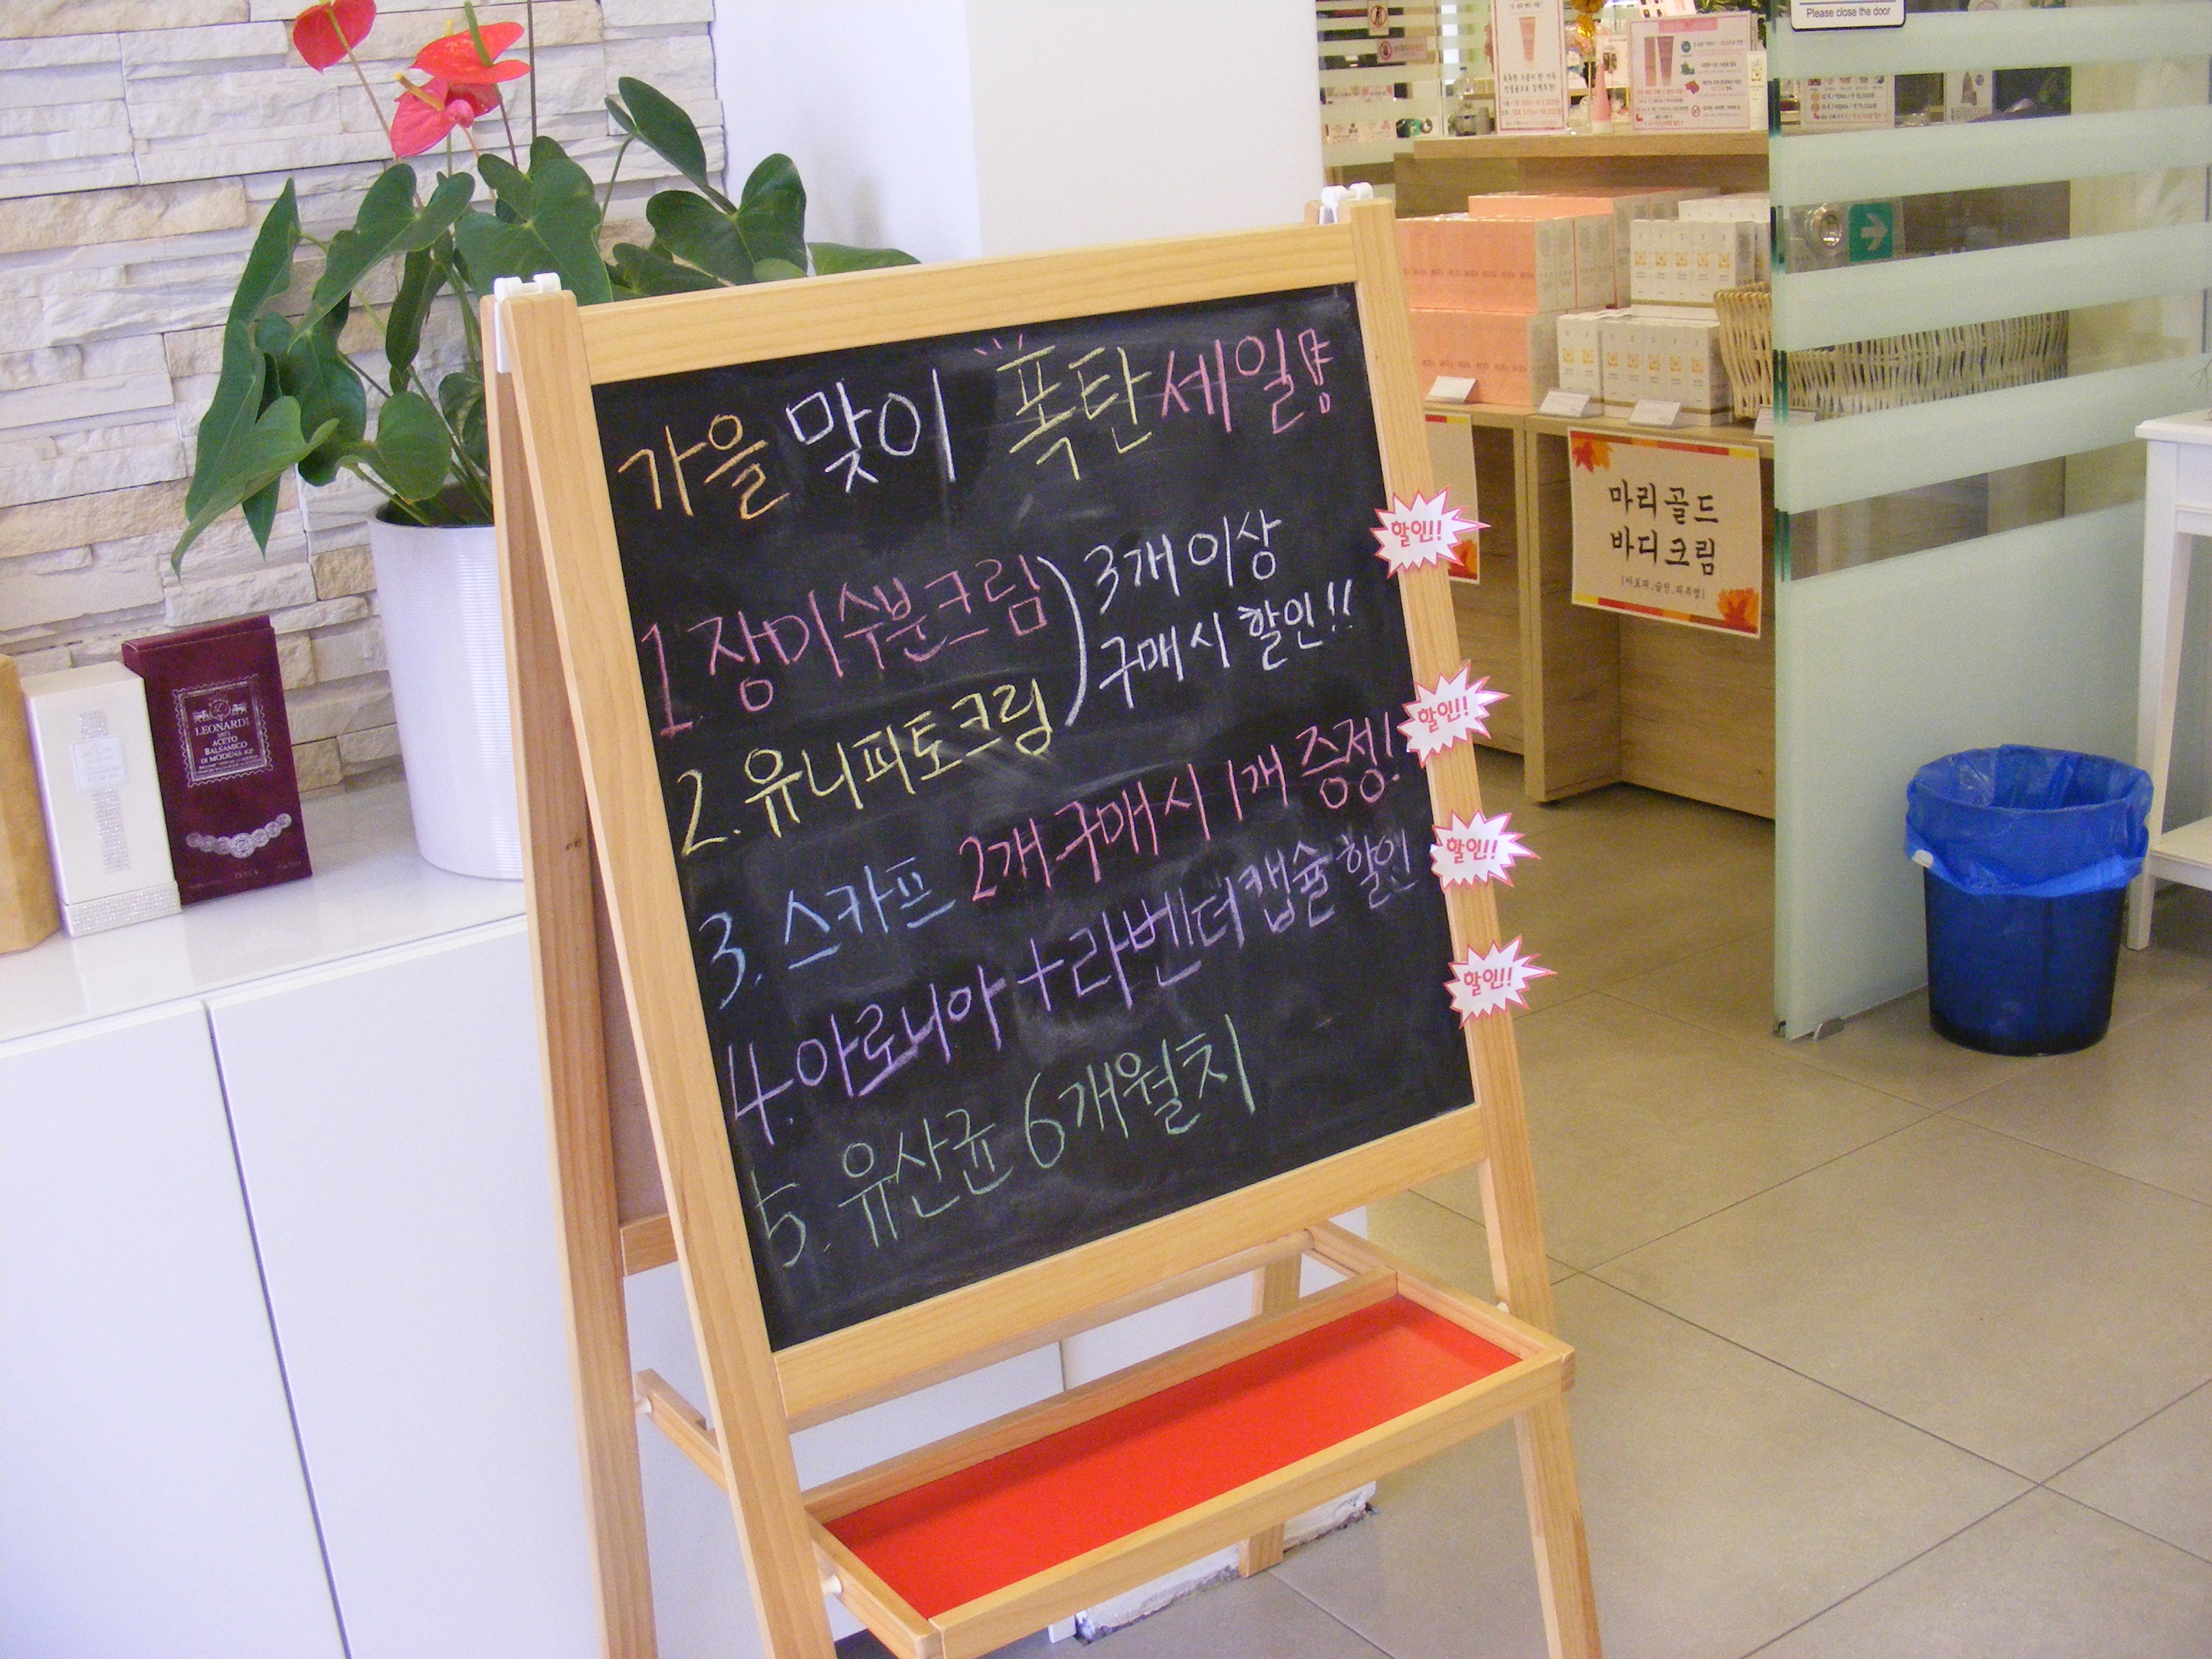 가을 맞이 폭탄세일!!
1. 장미수분크림
2. 유니피토크림
3개 이상
구매시 할인!!
3. 스카프 2개 구매시 1개 증정!
4. 아로니아 + 라벤더캡슐 할인
5. 유산균 6개월치
할인!!
할인!!
할인!!
할인!!
마리골드
바디크림
Please close the door
LEONARDI
ACETO
BALSAMICO
DI MODENA